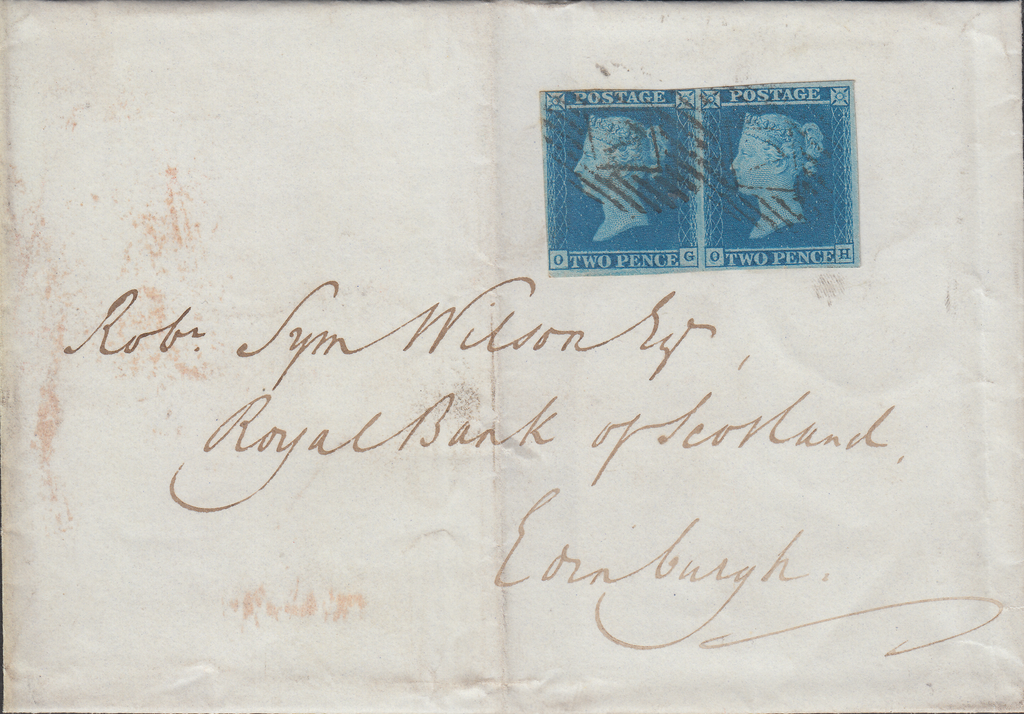 POSTAGE POSTAGE
O TWO PENCE G O TWO PENCE H
Robr. Sym Wilson Esqr,
Royal Bank of Scotland,
Edinburgh.